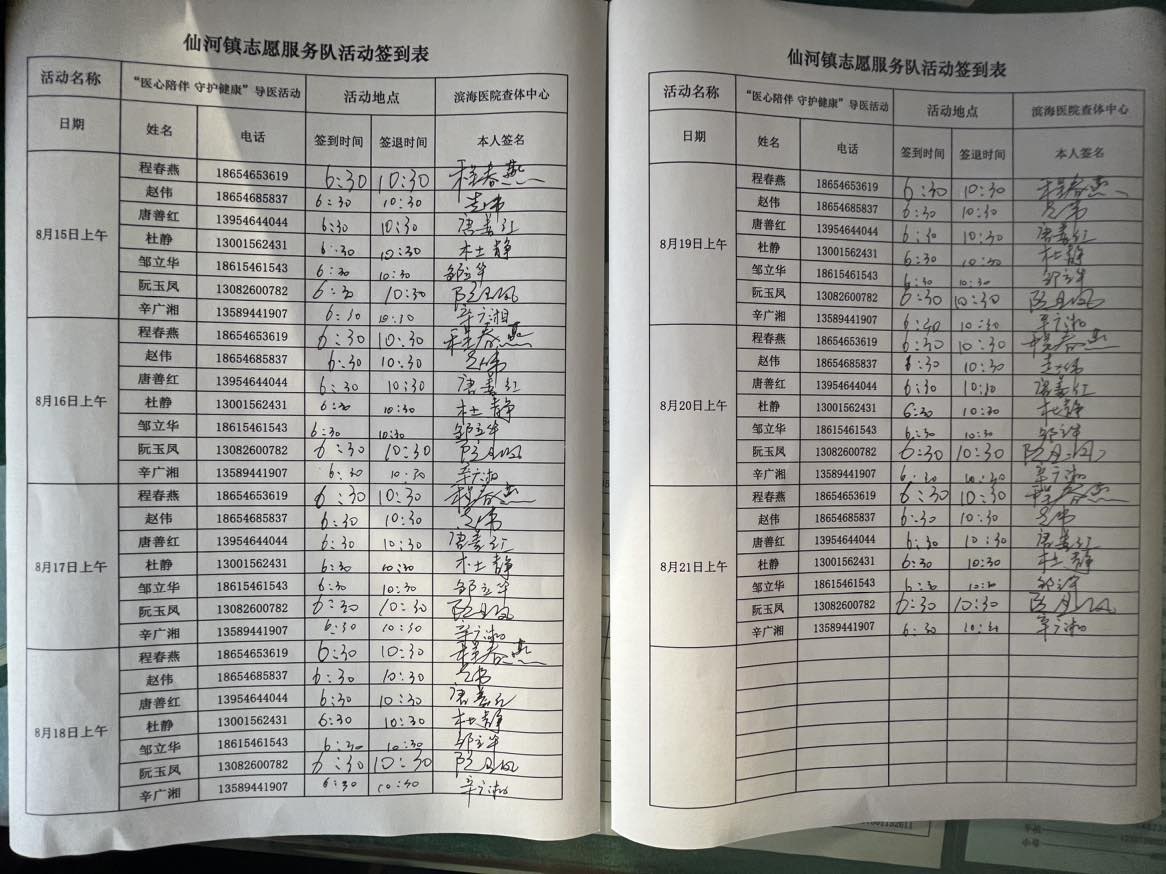 仙河镇志愿服务队活动签到表
活动名称 “医心陪伴 守护健康”导医活动 活动地点 滨海医院查体中心
日期 姓名 电话 签到时间 签退时间 本人签名
8月15日上午
程春燕 18654653619 6:30 10:30 程春燕
赵伟 18654685837 6:30 10:30 赵伟
唐善红 13954644044 6:30 10:30 唐善红
杜静 13001562431 6:30 10:30 杜静
邹立华 18615461543 6:30 10:30 邹立华
阮玉凤 13082600782 6:30 10:30 阮玉凤
辛广湘 13589441907 6:30 10:30 辛广湘
8月16日上午
程春燕 18654653619 6:30 10:30 程春燕
赵伟 18654685837 6:30 10:30 赵伟
唐善红 13954644044 6:30 10:30 唐善红
杜静 13001562431 6:30 10:30 杜静
邹立华 18615461543 6:30 10:30 邹立华
阮玉凤 13082600782 6:30 10:30 阮玉凤
辛广湘 13589441907 6:30 10:30 辛广湘
8月17日上午
程春燕 18654653619 6:30 10:30 程春燕
赵伟 18654685837 6:30 10:30 赵伟
唐善红 13954644044 6:30 10:30 唐善红
杜静 13001562431 6:30 10:30 杜静
邹立华 18615461543 6:30 10:30 邹立华
阮玉凤 13082600782 6:30 10:30 阮玉凤
辛广湘 13589441907 6:30 10:30 辛广湘
8月18日上午
程春燕 18654653619 6:30 10:30 程春燕
赵伟 18654685837 6:30 10:30 赵伟
唐善红 13954644044 6:30 10:30 唐善红
杜静 13001562431 6:30 10:30 杜静
邹立华 18615461543 6:30 10:30 邹立华
阮玉凤 13082600782 6:30 10:30 阮玉凤
辛广湘 13589441907 6:30 10:30 辛广湘
仙河镇志愿服务队活动签到表
活动名称 “医心陪伴 守护健康”导医活动 活动地点 滨海医院查体中心
日期 姓名 电话 签到时间 签退时间 本人签名
8月19日上午
程春燕 18654653619 6:30 10:30 程春燕
赵伟 18654685837 6:30 10:30 赵伟
唐善红 13954644044 6:30 10:30 唐善红
杜静 13001562431 6:30 10:30 杜静
邹立华 18615461543 6:30 10:30 邹立华
阮玉凤 13082600782 6:30 10:30 阮玉凤
辛广湘 13589441907 6:30 10:30 辛广湘
8月20日上午
程春燕 18654653619 6:30 10:30 程春燕
赵伟 18654685837 6:30 10:30 赵伟
唐善红 13954644044 6:30 10:30 唐善红
杜静 13001562431 6:30 10:30 杜静
邹立华 18615461543 6:30 10:30 邹立华
阮玉凤 13082600782 6:30 10:30 阮玉凤
辛广湘 13589441907 6:30 10:30 辛广湘
8月21日上午
程春燕 18654653619 6:30 10:30 程春燕
赵伟 18654685837 6:30 10:30 赵伟
唐善红 13954644044 6:30 10:30 唐善红
杜静 13001562431 6:30 10:30 杜静
邹立华 18615461543 6:30 10:30 邹立华
阮玉凤 13082600782 6:30 10:30 阮玉凤
辛广湘 13589441907 6:30 10:30 辛广湘